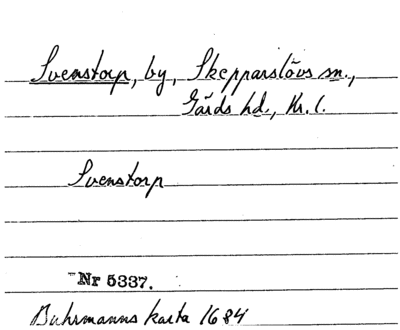 Svenstorp, by, Skepparslövs sn.,
Gärds hd., Kr. l.
Svenstorp
Nr 5337.
Buhrmanns karta 1684